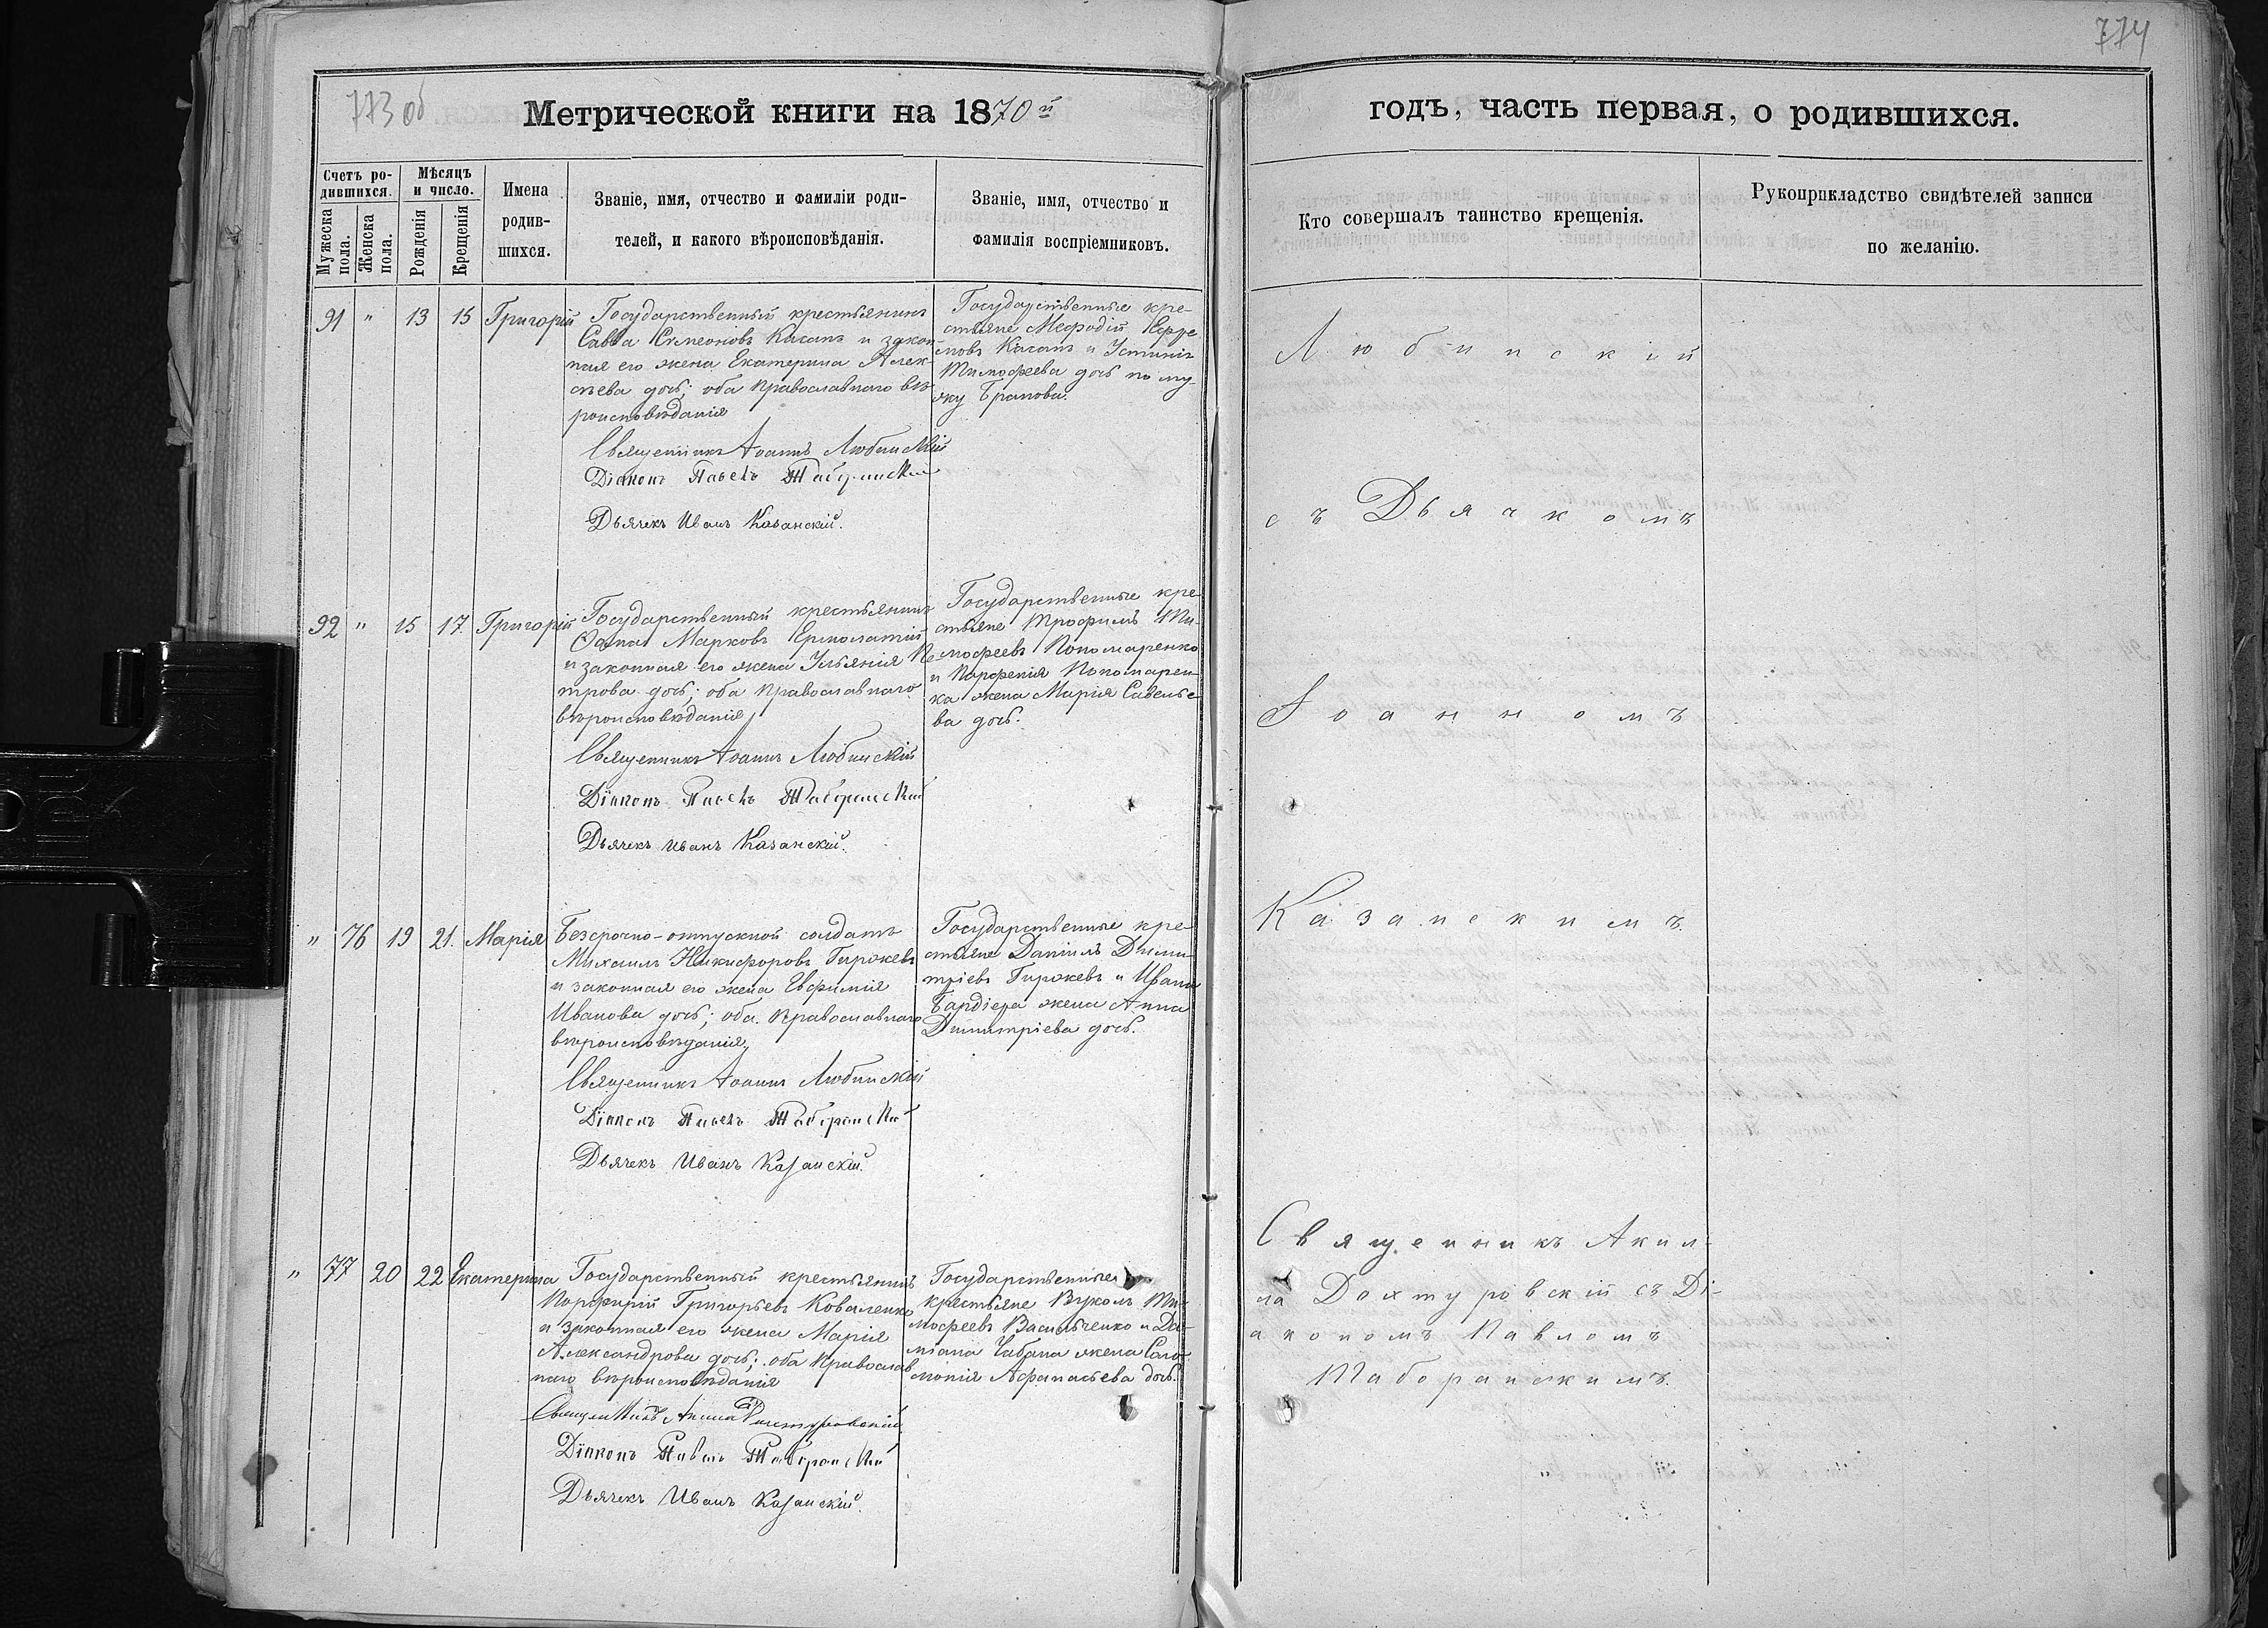 773 об
774
Метрической книги на 1870й
годъ, часть первая, о родившихся.
Счетъ ро-
дившихся.
Мужеска
пола.
Женска
пола.
Мѣсяцъ
и число.
Рожденія
Крещенія
Имена
родив-
шихся.
Званіе, имя, отчество и фамиліи роди-
телей, и какого вѣроисповѣданія.
Званіе, имя, отчество и
фамилія воспріемниковъ.
Кто совершалъ таинство крещенія.
Рукоприкладство свидѣтелей записи
по желанію.
91 " 13 15 Григорій
Государственный крестьянинъ
Савва Симеоновъ Касапъ и закон-
ная его жена Екатерина Алек-
сѣева дочь; оба православнаго вѣ-
роисповѣданія
Священникъ Іоаннъ Любинскій
Діаконъ Павелъ
Дьячекъ Иванъ Казанскій.
Государственные кре-
стьяне Мефодій Ефре-
мовъ Касапъ и Устинія
Тимофеева дочь по му-
жу
Любинскій
съ Дьячкомъ
Іоанномъ
Казанскимъ.
92 " 15 17 Григорій
Государственный крестьянинъ
Марковъ
и законная его жена Ульянія Пе-
трова дочь; оба православнаго
вѣроисповѣданія
Священникъ Іоаннъ Любинскій
Діаконъ Павелъ
Дьячекъ Иванъ Казанскій.
Государственные кре-
стьяне Трофимъ Ти-
мофеевъ Пономаренко
и Парфенія Пономарен-
ка жена Марія Савелье-
ва дочь.
" 76 19 21. Марія
Безсрочно-отпускной солдатъ
Михаилъ Никифоровъ Гиржевъ
и законная его жена Евфимія
Иванова дочь; оба православнаго
вѣроисповѣданія.
Священникъ Іоаннъ Любинскій
Діаконъ Павелъ Таборанскій
Дьячекъ Иванъ Казанскій.
Государственные кре-
стьяне Даніилъ Дими-
тріевъ Гиржевъ и Ивана
Бардіера жена Анна
Димитріева дочь.
" 77 20 22 Екатерина
Государственный крестьянинъ
Порфирій Григорьевъ Коваленко
и законная его жена Марія
Александрова дочь; оба православ
наго вѣроисповѣданія
Священникъ Акила
Діаконъ Павелъ Таборанскій
Дьячекъ Иванъ Казанскій.
Государственные
крестьяне Вуколъ Ти-
мофеевъ Васильченко и Да-
міана Чабана жена Соло-
монія Афанасьева дочь.
Священникъ Акил-
ла Дохтуровскій съ Ді-
акономъ Павломъ
Таборанскимъ.